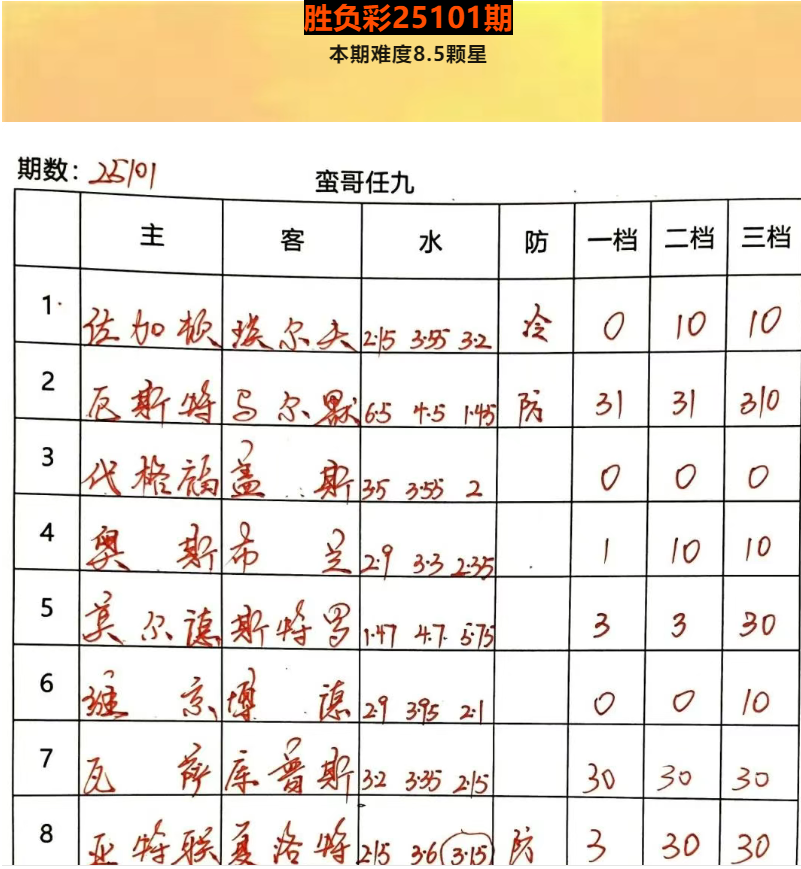 胜负彩25101期
本期难度8.5颗星
期数: 25101
蛮哥任九
主 客 水 防 一档 二档 三档
1 佐加顿 埃尔夫 2.15 3.55 3.2 冷 0 10 10
2 瓦斯特 马尔默 6.5 4.5 1.45 防 31 31 310
3 代格福 盖斯 3.5 3.55 2 0 0 0
4 奥斯 布兰 2.9 3.3 2.35 1 10 10
5 莫尔德 斯特罗 1.47 4.7 5.75 3 3 30
6 维京 博德 2.9 3.95 2.1 0 0 10
7 瓦萨 库普斯 3.2 3.35 2.15 30 30 30
8 亚特联 夏洛特 2.15 3.6 3.15 防 3 30 30